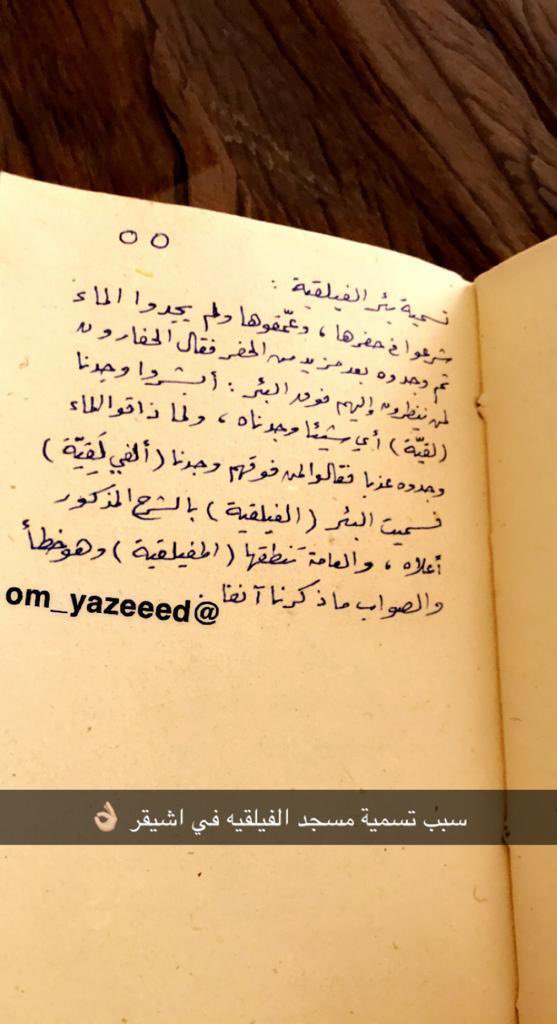 ٥٥
تسمية بئر الفيلقية :
شرعوا في حفرها ، وعمّقوها ولم يجدوا الماء
ثم وجدوه بعد مزيد من الحفر فقال الحفارون
لمن ينظرون إليهم فوق البئر : أبشروا وجدنا
(لقيّة) أي شيئا وجدناه ، ولما ذاقوا الماء
وجدوه عذبا فقالوا لمن فوقهم وجدنا (ألفي لَقِيّة)
فسميت البئر (الفيلقية) بالشرح المذكور
أعلاه ، والعامة تنطقها (المفيلقية) وهو خطأ
والصواب ما ذكرنا آنفا .
om_yazeeed@
سبب تسمية مسجد الفيلقيه في اشيقر 👌🏼